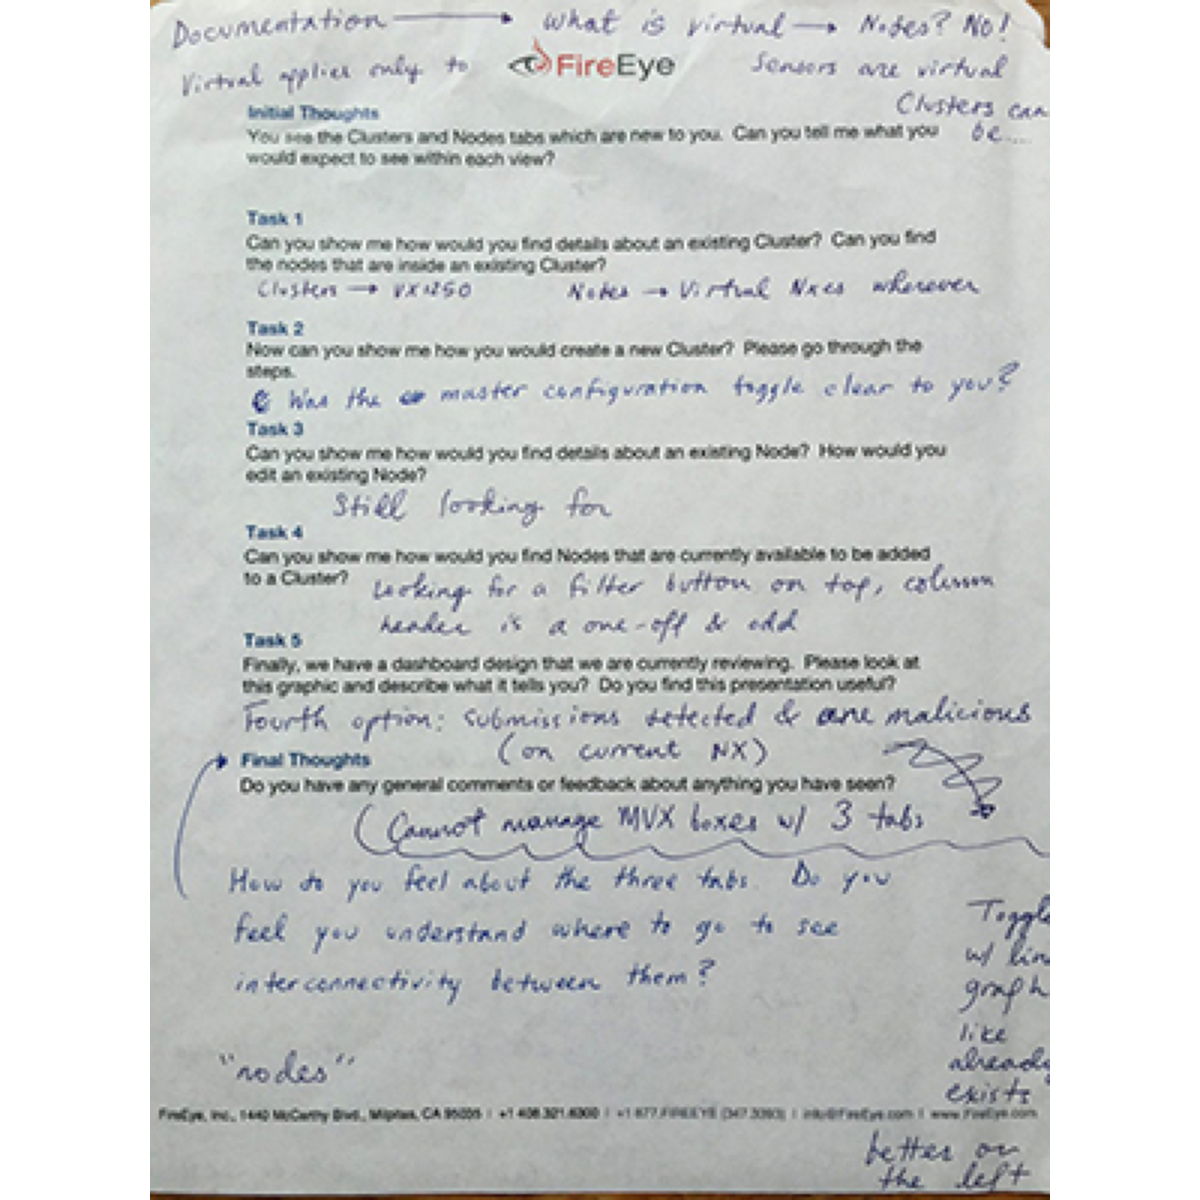 Documentation → What is virtual → Nodes? No!
Virtual applies only to FireEye Sensors are virtual
Clusters can
be....
Initial Thoughts
You see the Clusters and Nodes tabs which are new to you. Can you tell me what you
would expect to see within each view?
Task 1
Can you show me how would you find details about an existing Cluster? Can you find
the nodes that are inside an existing Cluster?
Clusters → VX1250 Notes → Virtual Nxes wherever
Task 2
Now can you show me how you would create a new Cluster? Please go through the
steps.
Was the master configuration toggle clear to you?
Task 3
Can you show me how would you find details about an existing Node? How would you
edit an existing Node?
Still looking for
Task 4
Can you show me how would you find Nodes that are currently available to be added
to a Cluster?
Looking for a filter button on top, column
header is a one-off & odd
Task 5
Finally, we have a dashboard design that we are currently reviewing. Please look at
this graphic and describe what it tells you? Do you find this presentation useful?
Fourth option: submissions detected & are malicious
(on current NX)
Final Thoughts
Do you have any general comments or feedback about anything you have seen?
(Cannot manage MVX boxes w/ 3 tabs
How do you feel about the three tabs. Do you
feel you understand where to go to see
interconnectivity between them?
Toggle
w/ lin
graph
like
already
exists
"nodes"
FireEye, Inc., 1440 McCarthy Blvd., Milpitas, CA 95035 | +1 408.321.6300 | +1 877.FIREEYE (347.3393) | info@FireEye.com | www.FireEye.com
better on
the left